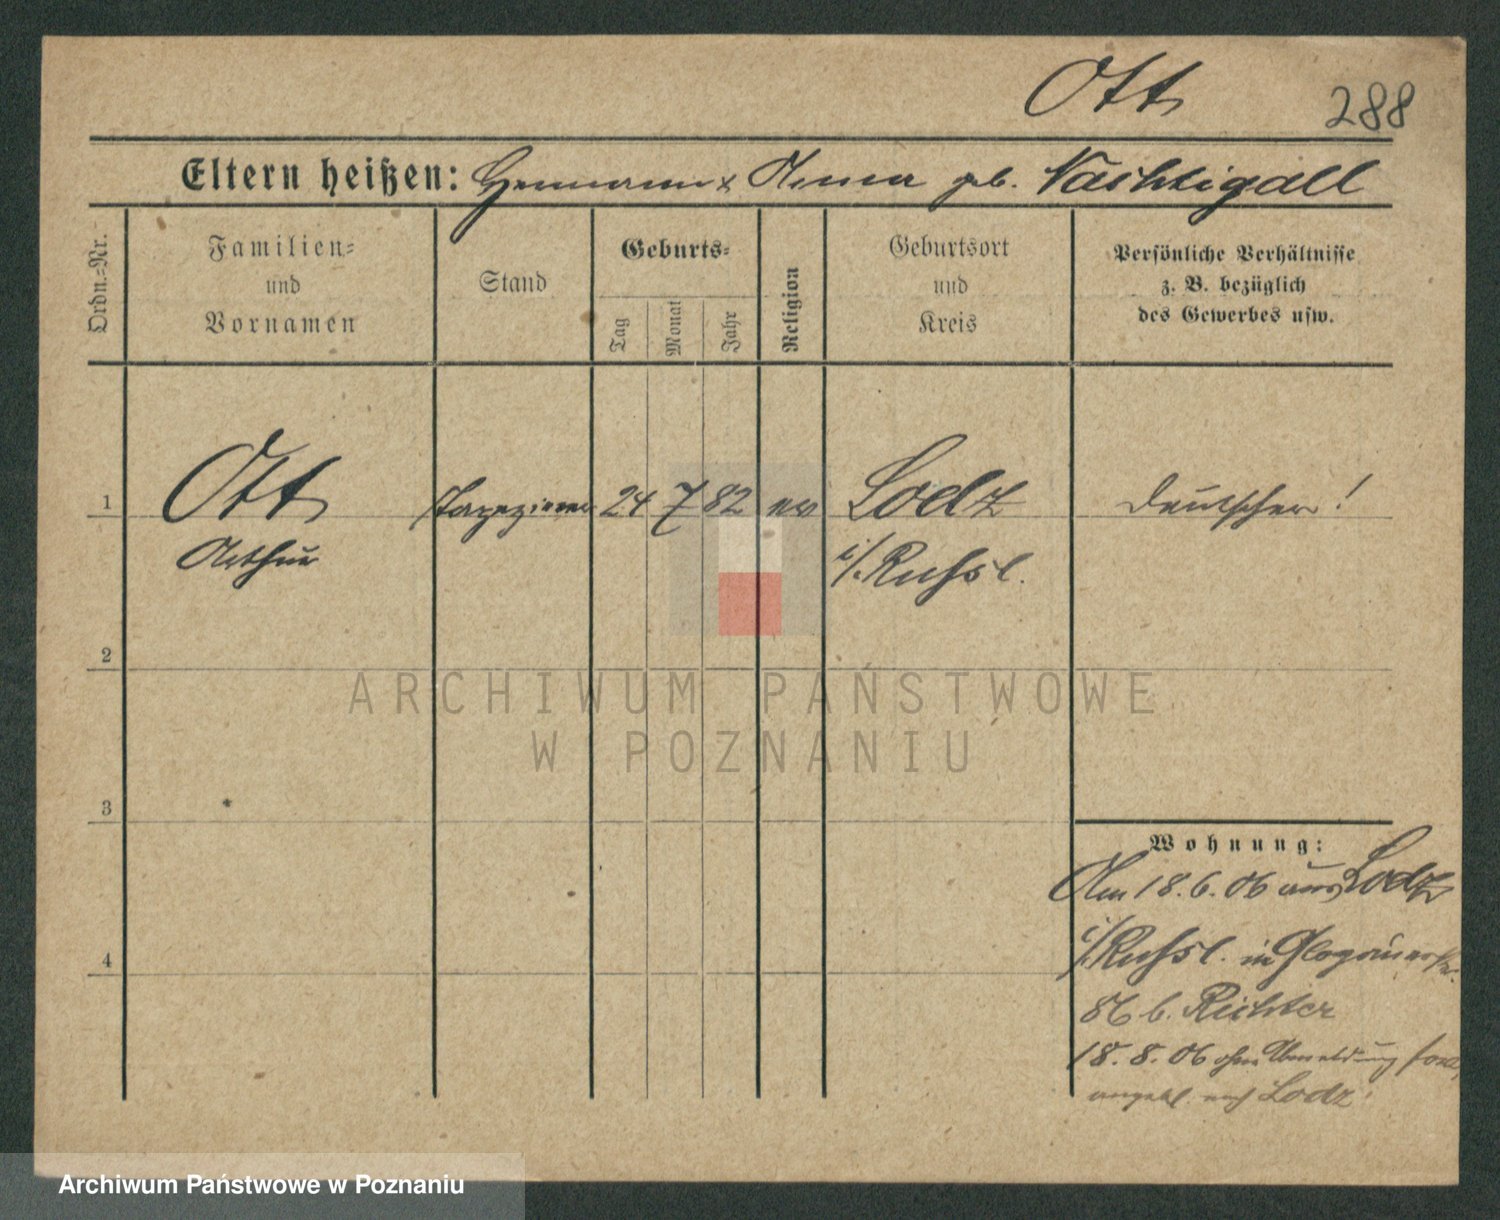 Ott
288
Eltern heißen: Hermann & Anna geb. Nachtigall
Ordn.-Nr.
Familien-
und
Vornamen
Stand
Geburts-
Tag
Monat
Jahr
Religion
Geburtsort
und
Kreis
Persönliche Verhältnisse
z. B. bezüglich
des Gewerbes usw.
1
Ott
Tapezierer
24
7
82
ev
Lodz
Deutscher!
Arthur
i/Rußl.
2
ARCHIWUM PAŃSTWOWE
W POZNANIU
3
Wohnung:
Am 18.6.06 aus Lodz
i/Rußl. in Glogauerstr.
86 b. Richter
4
18.8.06 ohne Abmeldung fort,
angebl. nach Lodz
Archiwum Państwowe w Poznaniu